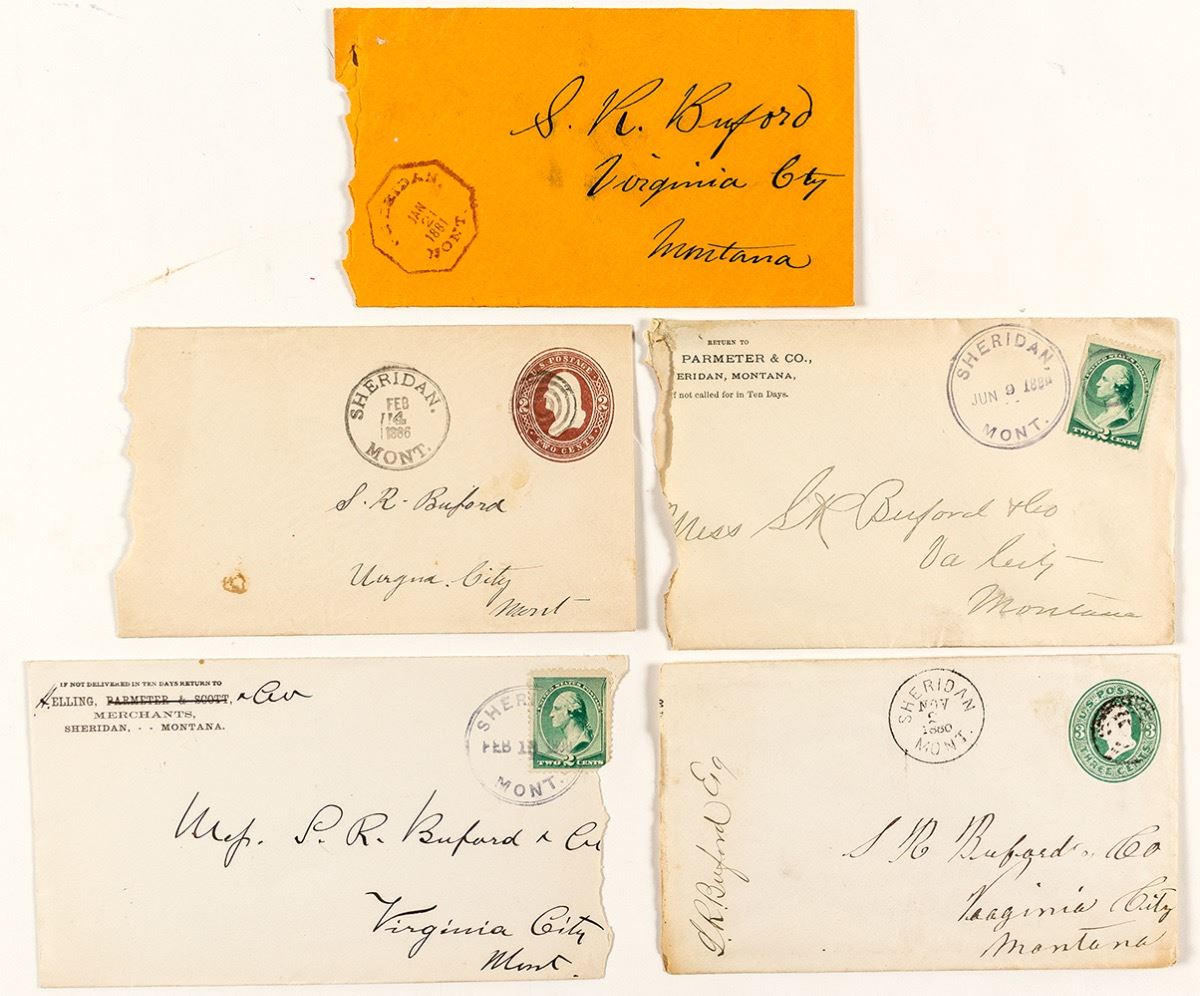 S. R. Buford
Virginia Cty
Montana
SHERIDAN,
JAN
21
1881
MONT.
SHERIDAN.
FEB
14
1886
MONT.
U.S. POSTAGE
2
2
TWO CENTS
S. R. Buford
Virgna. City
Mont
RETURN TO
PARMETER & CO.,
ERIDAN, MONTANA,
f not called for in Ten Days.
SHERIDAN,
JUN 9
MONT.
UNITED STATES POSTAGE
TWO 2 CENTS
Mess S R Buford & Co
Va City
Montana
IF NOT DELIVERED IN TEN DAYS RETURN TO
HELLING, PARMETER & SCOTT, & Co
MERCHANTS,
SHERIDAN, - - MONTANA.
SHER
FEB 1
MONT.
UNITED STATES POSTAGE
TWO 2 CENTS
Mess. S. R. Buford & Co
Virginia City
Mont.
SHERIDAN
NOV
1880
MONT.
U.S. POST
3
3
THREE CENTS
S. R. Buford Esq
S R Buford & Co
Viaginia City
Montana